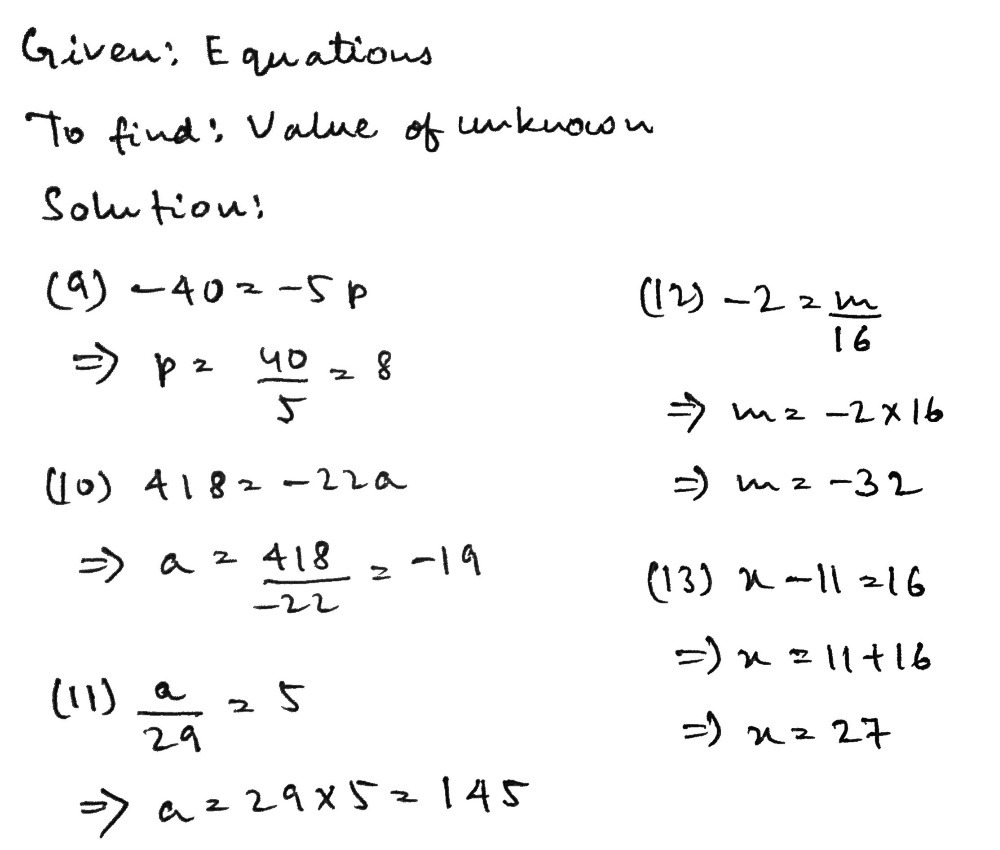 Given: Equations
To find: Value of unknown
Solution:
(9) -40 = -5p
⇒ p = 40/5 = 8
(10) 418 = -22a
⇒ a = 418/-22 = -19
(11) a/29 = 5
⇒ a = 29×5 = 145
(12) -2 = m/16
⇒ m = -2×16
⇒ m = -32
(13) x - 11 = 16
⇒ x = 11+16
⇒ x = 27